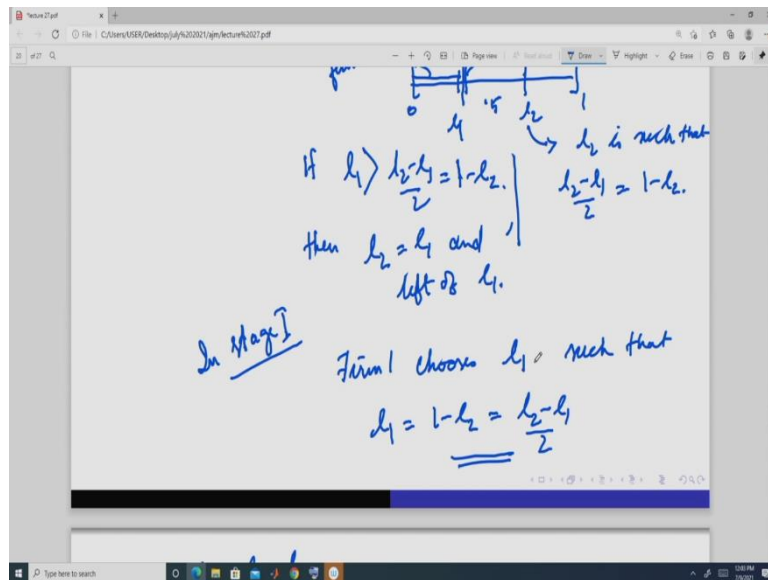 "lecture 27.pdf
File | C:/Users/USER/Desktop/july%202021/ajm/lecture%2027.pdf
of 27
Page view
Read aloud
Draw
Highlight
Erase
0 l₁ .5 l₂ 1
l₂ is such that
(l₂-l₁)/2 = 1-l₂.
If l₁ > (l₂-l₁)/2 = 1-l₂.
then l₂ = l₁ and
left of l₁.
In stage I
Firm 1 chooses l₁ such that
l₁ = 1-l₂ = (l₂-l₁)/2
Type here to search
12:03 PM
7/9/2021